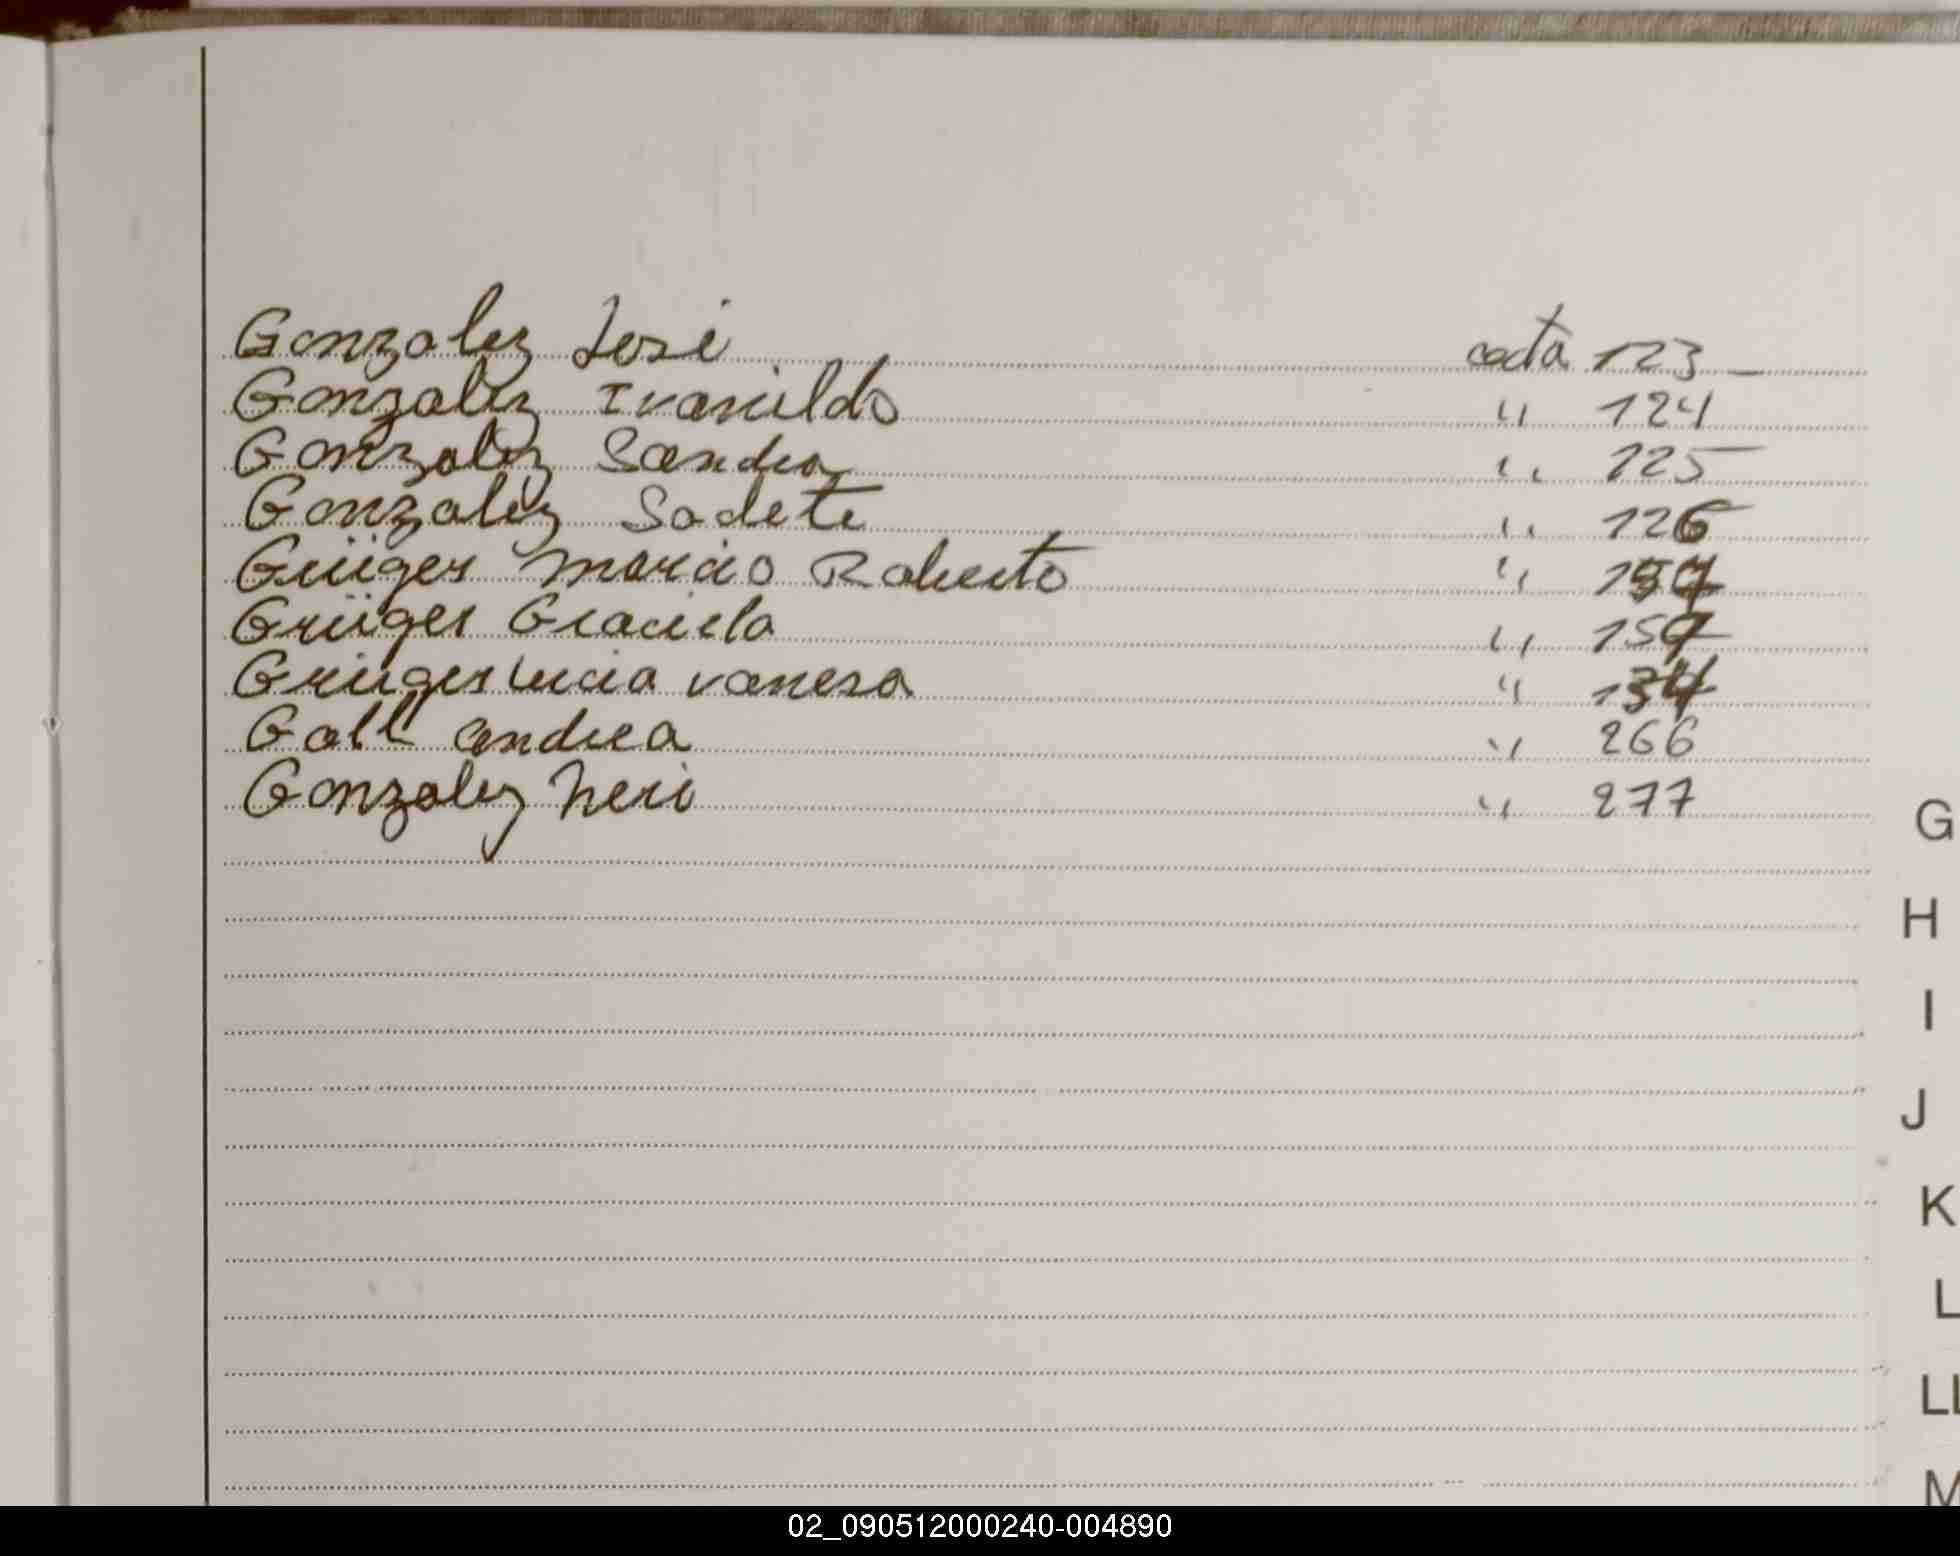 Gonzalez José acta 123 _
Gonzalez Ivanildo " 124
Gonzalez Sandra " 125
Gonzalez Sadete " 126
Grüiges Marcio Roberto "
Grüiges Graciela "
Grüiges Lucia Vanesa "
Gall Andrea " 266
Gonzalez Neri " 277
G
H
I
J
K
L
LL
M
02_090512000240-004890